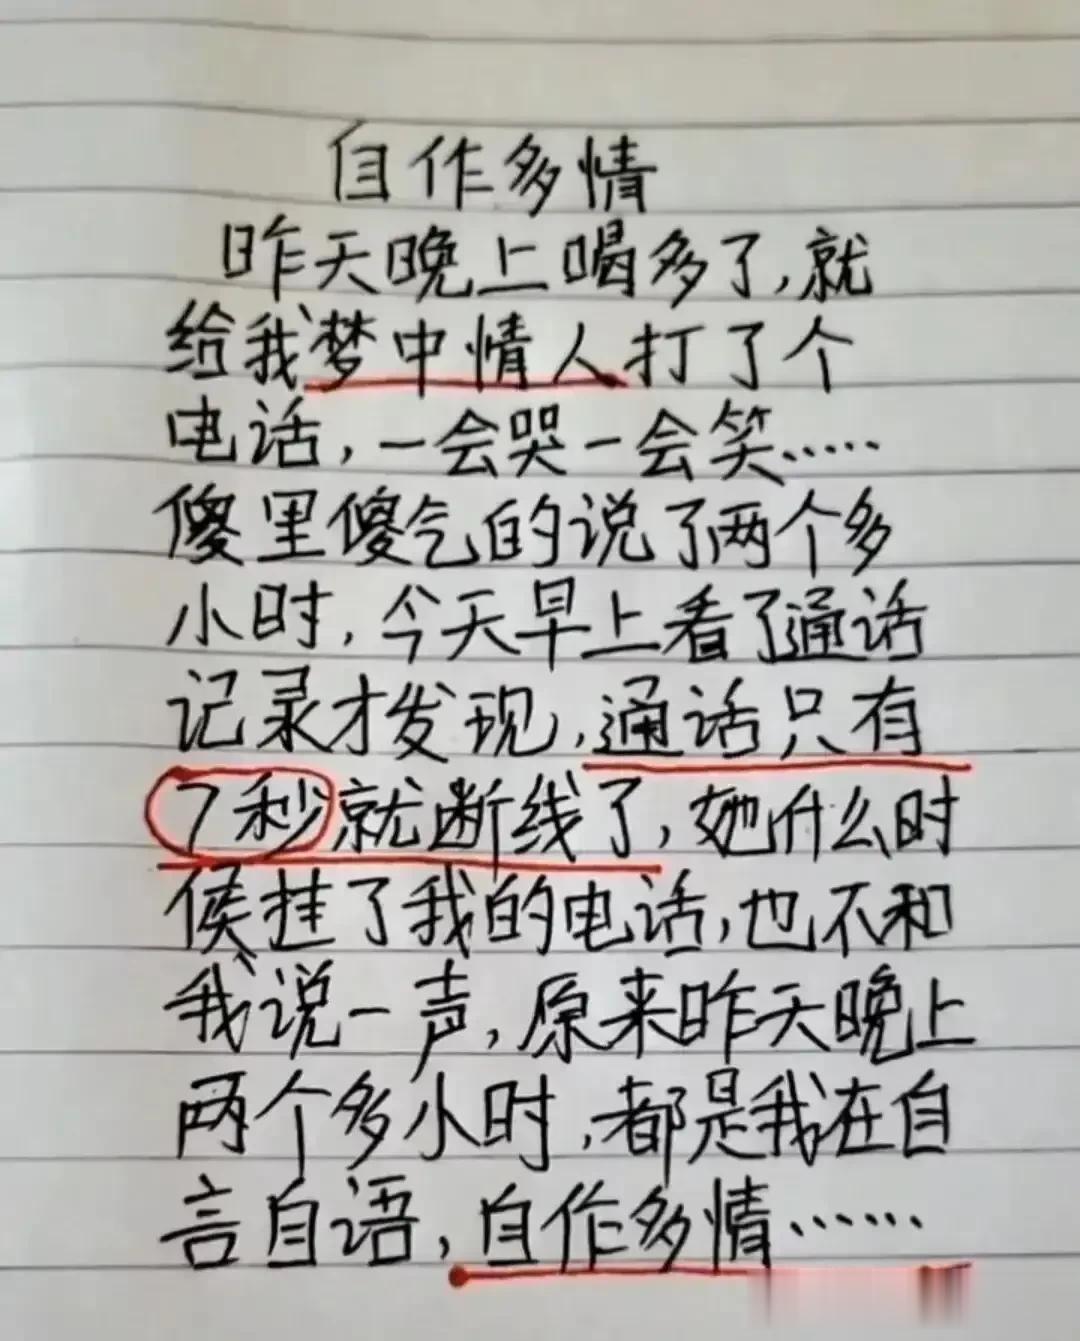 自作多情
昨天晚上喝多了,就
给我梦中情人打了个
电话,一会哭一会笑……
傻里傻气的说了两个多
小时,今天早上看了通话
记录才发现,通话只有
7秒就断线了,她什么时
候挂了我的电话,也不和
我说一声,原来昨天晚上
两个多小时,都是我在自
言自语,自作多情……